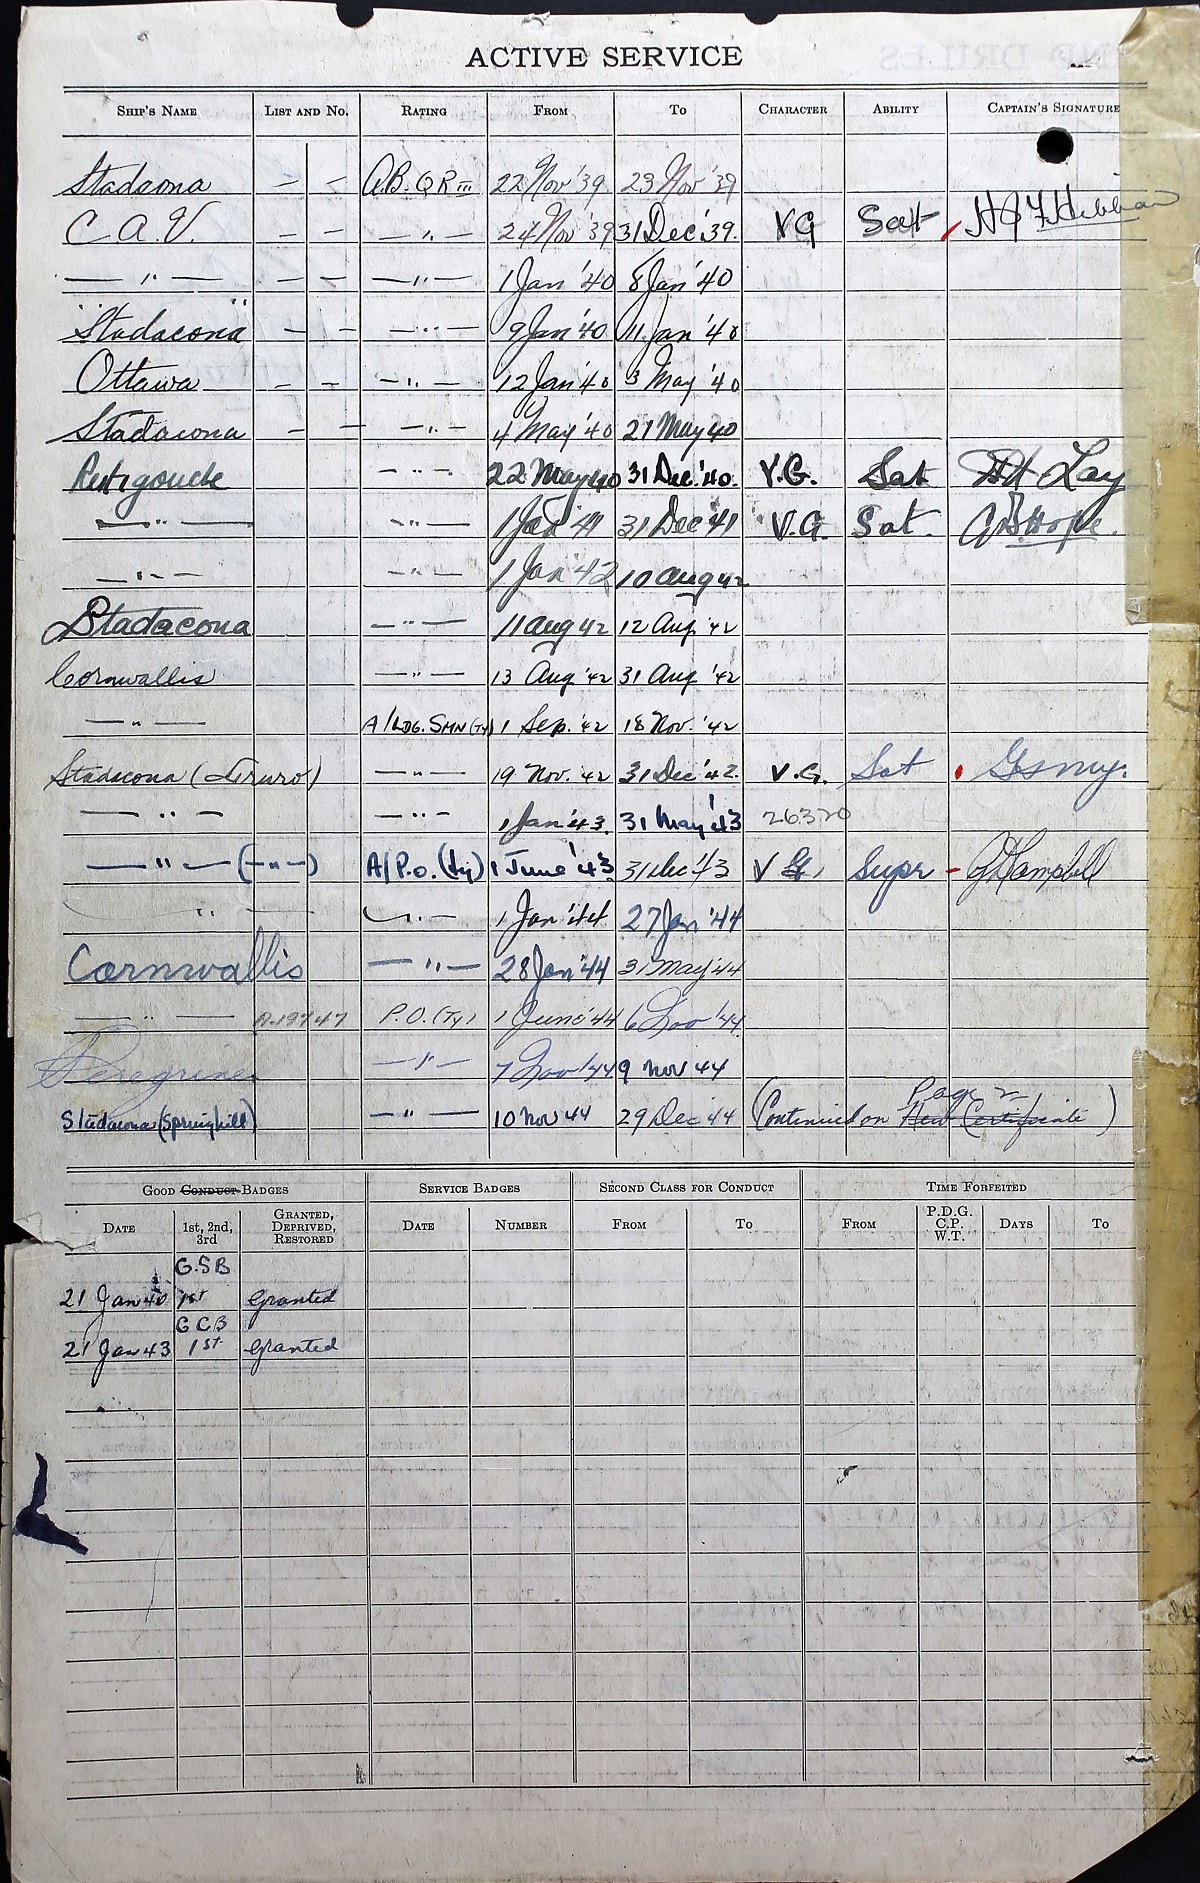 ACTIVE SERVICE
SHIP'S NAME LIST AND NO. RATING FROM TO CHARACTER ABILITY CAPTAIN'S SIGNATURE
Stadacona — — A.B. QR III 22 Nov '39 23 Nov '39
C.A.V. — — — " — 24 Nov '39 31 Dec '39. VG Sat
— " — — — — " — 1 Jan '40 8 Jan '40
"Stadacona" — — — " — 9 Jan '40 11 Jan '40
Ottawa — — — " — 12 Jan '40 3 May '40
Stadacona — — — " — 4 May '40 21 May 40
Restigouche — " — 22 May 40 31 Dec. '40. V.G. Sat
— " — — " — 1 Jan '41 31 Dec '41 V.G. Sat.
— " — — " — 1 Jan '42 10 Aug 42
Stadacona — " — 11 Aug 42 12 Aug '42
Cornwallis — " — 13 Aug '42 31 Aug '42
— " — A/LDG. SMN (TY) 1 Sep. '42 18 Nov. '42
Stadacona (Truro) — " — 19 Nov. '42 31 Dec '42. V.G. Sat
— " — — " — 1 Jan '43. 31 May '43 26320
— " — (— " —) A/P.O. (Ty) 1 June '43 31 Dec '43 VG. Supr - Campbell
" — " — 1 Jan '44 27 Jan '44
Cornwallis — " — 28 Jan '44 31 May '44
— " — A.19747 P.O. (Ty) 1 June '44 6 Nov '44
Peregrine — " — 7 Nov '44 9 Nov 44
Stadacona (Springhill) — " — 10 Nov 44 29 Dec '44 (Continued on New Certificate Page 2)
GOOD CONDUCT BADGES SERVICE BADGES SECOND CLASS FOR CONDUCT TIME FORFEITED
DATE 1st, 2nd, 3rd GRANTED, DEPRIVED, RESTORED DATE NUMBER FROM TO FROM P.D.G. C.P. W.T. DAYS TO
G.S.B
21 Jan 40 1st Granted
G C B
21 Jan 43 1st Granted